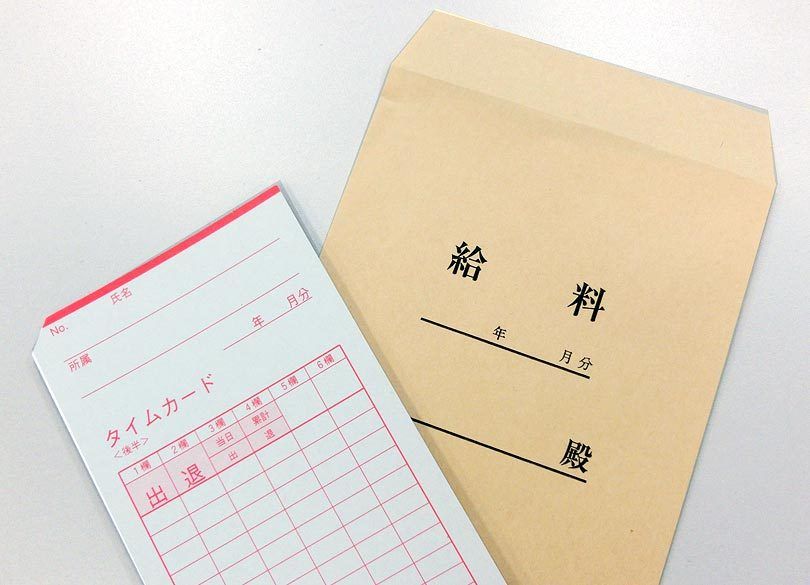 No. 氏名
所属 年 月分
タイムカード
<後半>
1欄 2欄 3欄 4欄 5欄 6欄
出 退 当日 累計
出 退
給料
年 月分
殿